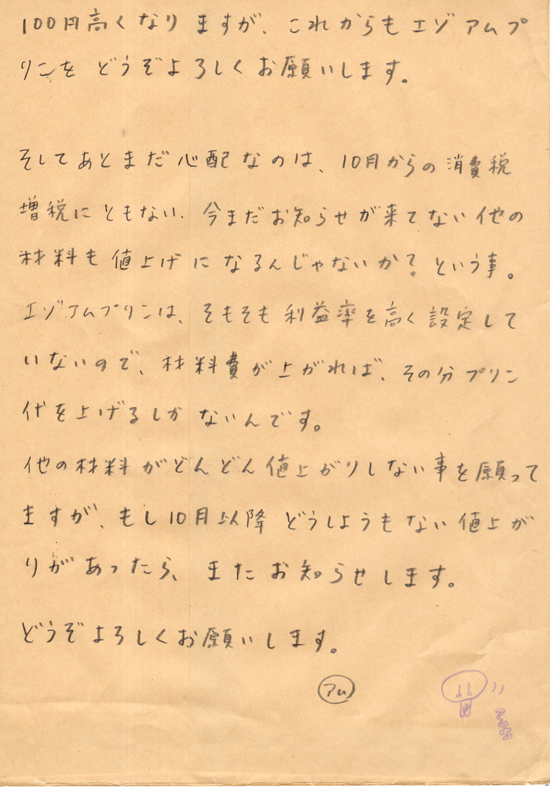 100円高くなりますが、これからもエゾアムプ
リンをどうぞよろしくお願いします。
そしてあとまだ心配なのは、10月からの消費税
増税にともない、今まだお知らせが来てない他の
材料も値上げになるんじゃないか?という事。
エゾアムプリンは、そもそも利益率を高く設定して
いないので、材料費が上がれば、その分プリン
代を上げるしかないんです。
他の材料がどんどん値上がりしない事を願って
ますが、もし10月以降どうしようもない値上が
りがあったら、またお知らせします。
どうぞよろしくお願いします。
アム